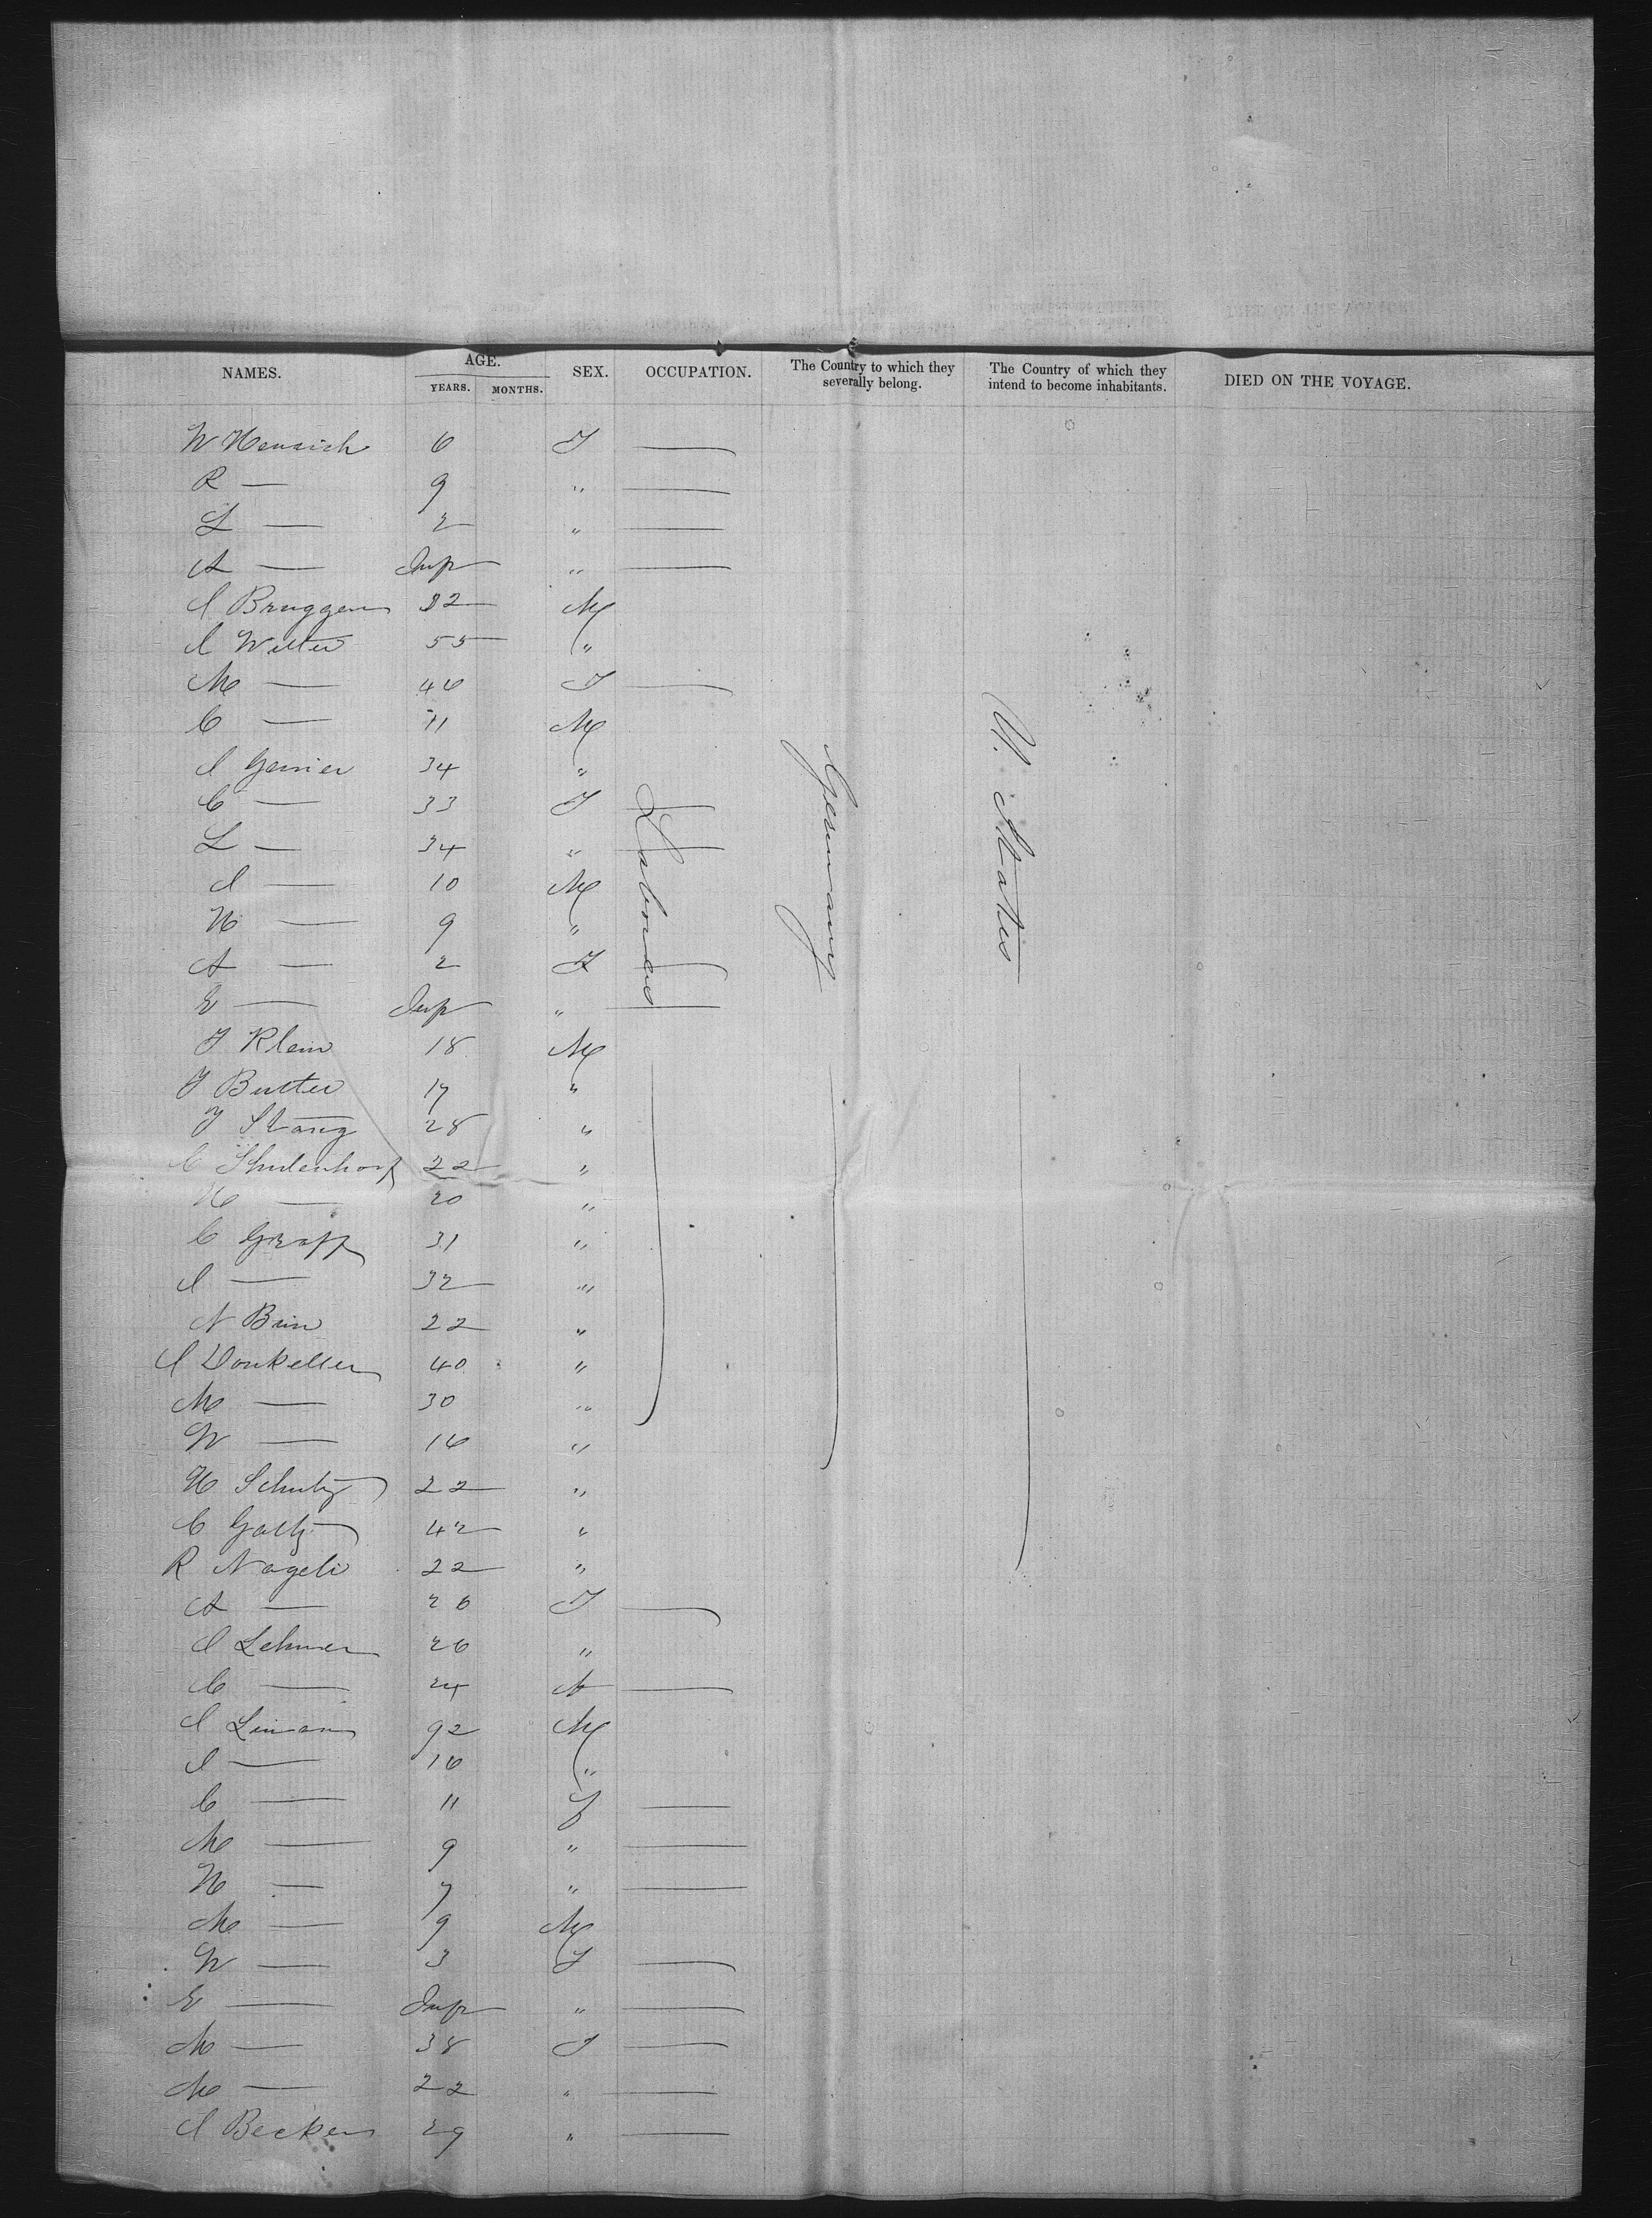 NAMES. AGE. YEARS. MONTHS. SEX. OCCUPATION. The Country to which they severally belong. The Country of which they intend to become inhabitants. DIED ON THE VOYAGE.
W Henrich 6 F —
R — 9 " —
L — 2 " —
A — Inf " —
J Bruggen 32 M
J Welter 55 "
M — 46 F —
C — 11 M
J Genier 34 "
C — 33 F —
L — 34 " —
J — 10 M
H — 9 "
A — 2 F —
E — Inf " —
Laborers
Germany
U. States
F Klein 18 M
F Butter 17 "
F Stang 28 "
C Shulenhorf 22 "
H — 20 "
C Graff 31 "
J — 32 "
N Brin 22 "
J Donkeller 40 "
M — 30 "
W — 16 "
H Schultz 22 "
C Goltz 42 "
R Nageli 22 "
A — 26 F —
J Lehmer 26 "
C — 24 —
J Limann 92 M
J — 16 "
C — 11 F —
M — 9 " —
H — 7 " —
M — 9 M
W — 3 F —
E — Inf " —
M — 38 F —
M — 22 " —
J Becker 29 " —